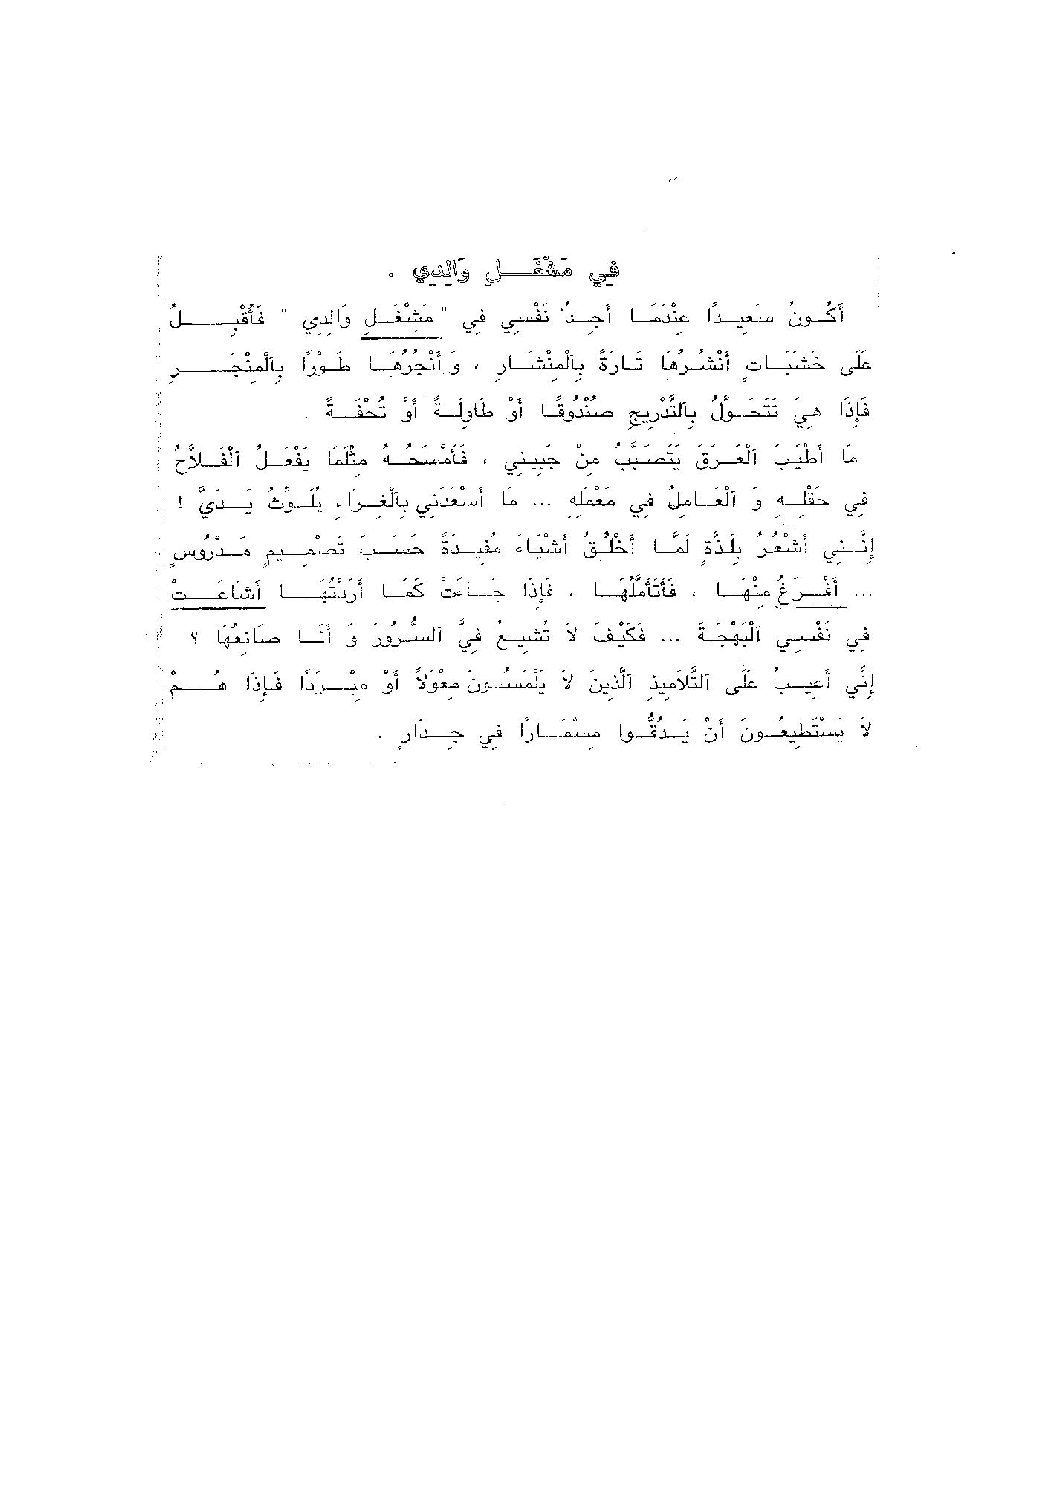 فِي مَشْغَلِ وَالِدِي .
أَكُونُ سَعِيدًا عِنْدَمَا أَجِدُ نَفْسِي فِي " مَشْغَلِ وَالِدِي " فَأُقْبِلُ
عَلَى خَشَبَاتٍ أَنْشُرُهَا تَارَةً بِالْمِنْشَارِ ، وَ أَنْجُرُهَا طَوْرًا بِالْمِنْجَرِ
فَإِذَا هِيَ تَتَحَوَّلُ بِالتَّدْرِيجِ صُنْدُوقًا أَوْ طَاوِلَةً أَوْ تُحْفَةً .
مَا أَطْيَبَ الْعَرَقَ يَتَصَبَّبُ مِنْ جَبِينِي ، فَأَمْسَحُهُ مِثْلَمَا يَفْعَلُ الْفَلَّاحُ
فِي حَقْلِهِ وَ الْعَامِلُ فِي مَعْمَلِهِ ... مَا أَسْعَدَنِي بِالْغِرَاءِ يُلَوِّثُ يَدَيَّ !
إِنَّنِي أَشْعُرُ بِلَذَّةٍ لَمَّا أَخْلُقُ أَشْيَاءَ مُفِيدَةً حَسَبَ تَصْمِيمٍ مَدْرُوسٍ
... أَفْرَغُ مِنْهَا ، فَأَتَأَمَّلُهَا ، فَإِذَا جَاءَتْ كَمَا أَرَدْتُهَا أَشَاعَتْ
فِي نَفْسِي الْبَهْجَةَ ... فَكَيْفَ لَا تُشِيعُ فِيَّ السُّرُورَ وَ أَنَا صَانِعُهَا ؟
إِنِّي أَعِيبُ عَلَى التَّلَامِيذِ الَّذِينَ لَا يَلْمَسُونَ مِعْوَلًا أَوْ مِبْرَدًا فَإِذَا هُمْ
لَا يَسْتَطِيعُونَ أَنْ يَدُقُّوا مِسْمَارًا فِي جِدَارٍ .